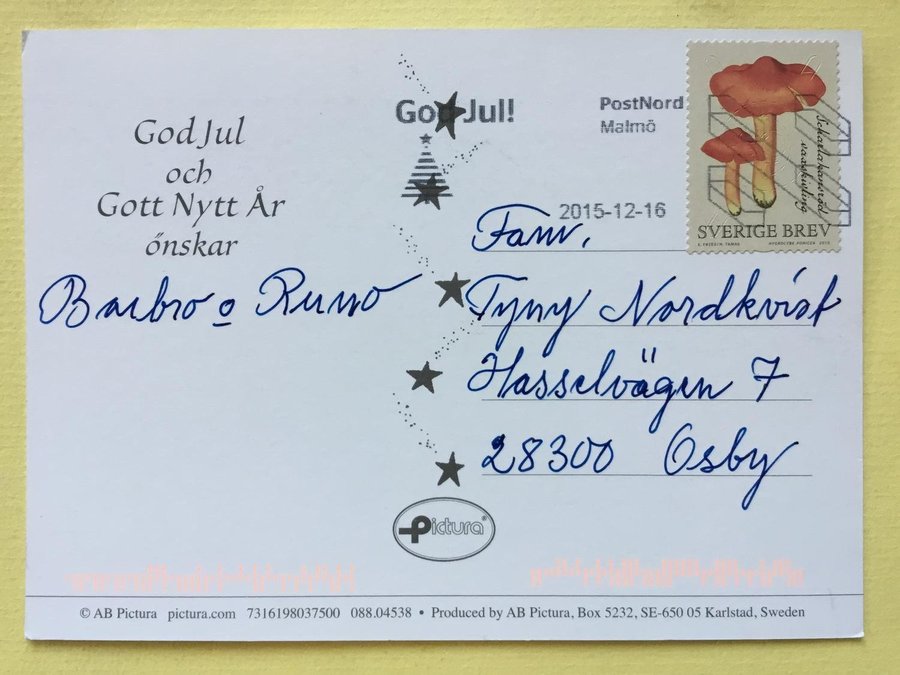 God Jul
och
Gott Nytt År
önskar
Barbro o Runo
God Jul!
PostNord
Malmö
2015-12-16
Scharlakansröd
vaxskivling
SVERIGE BREV
Fam.
Tyny Nordkvist
Hasselvägen 7
28300 Osby
Pictura®
© AB Pictura pictura.com 7316198037500 088.04538 • Produced by AB Pictura, Box 5232, SE-650 05 Karlstad, Sweden